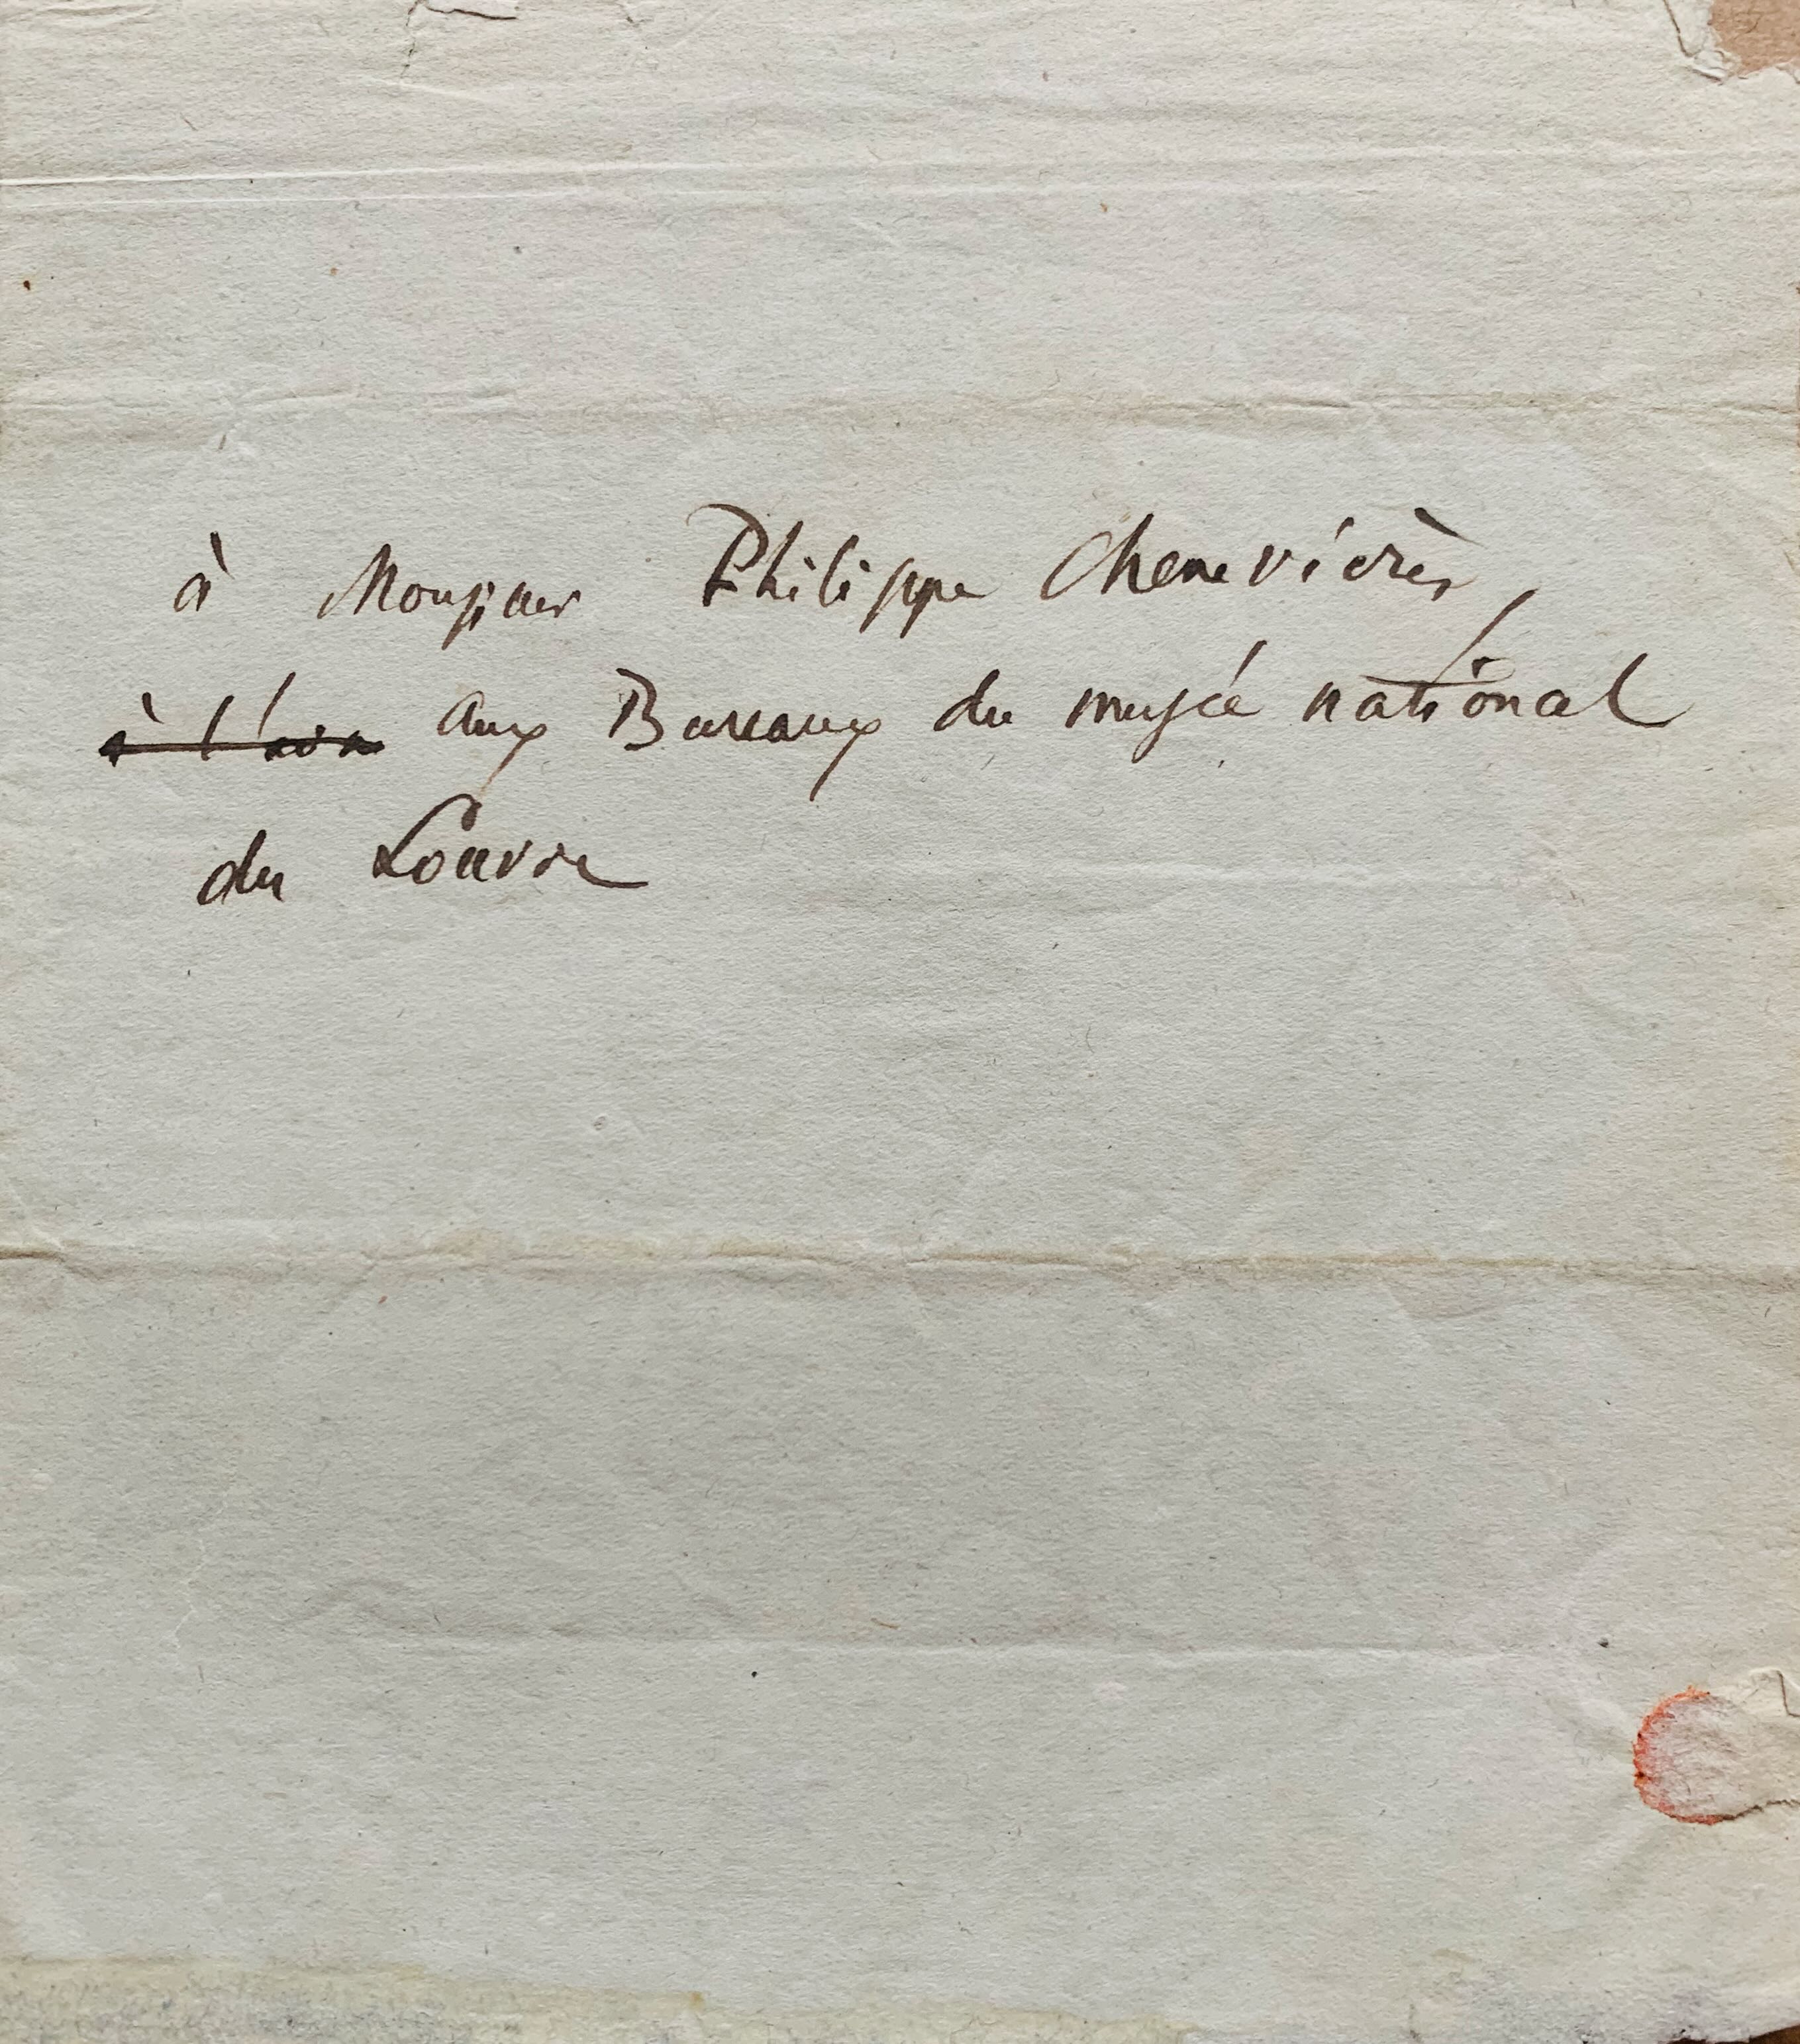 à Monsieur Philippe Chenevièrès,
aux Bureaux du musée national
du Louvre